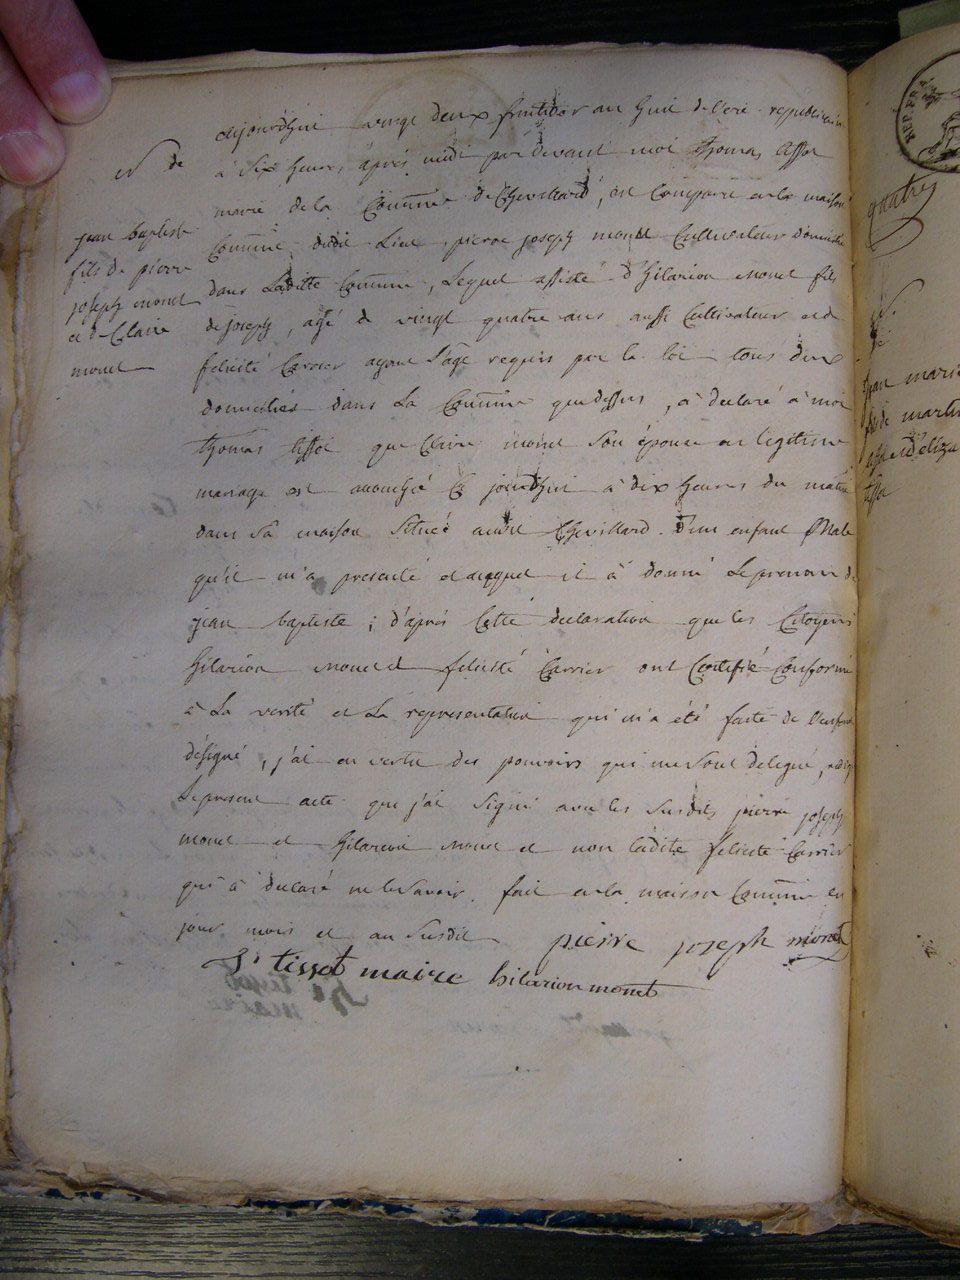 N de
jean baptiste
fils de pierre
joseph monet
et de Claire
monet
aujourdhui vingt deux fructidor an huit de l'ere republicaine
à six heures après midi par devant moi thomas tissot
maire de la Commune de Chevillard, est Comparu en la maison
Commune dudit Lieu pierre joseph monet Cultivateur domicilié
dans Laditte Commune, Lequel assisté d'hilarion monet fils
de joseph, agé de vingt quatre ans aussi Cultivateur et de
felicité Carrier ayant l'age requis par la loi tous deux
domiciliés dans La Commune que dessus, a declaré à moi
thomas tissot que Claire monet son épouse en legitime
mariage est accouchée Ce jourdhui à dix heures du matin
dans sa maison située audit Chevillard d'un enfant Male
qu'il m'a presenté et auquel il à donné Le prenom de
jean baptiste ; d'après Cette declaration que les Citoyens
hilarion monet et felicité Carrier ont Certifié Conforme
à La verité et La representation qui m'a été faite de l'enfant
désigné, j'ai en vertu des pouvoirs qui me sont delegué, redigé
Le present acte que j'ai signé avec les susdits pierre joseph
monet et hilarion monet et non ladite felicité Carrier
qui à declaré ne le savoir. fait en la maison Commune les
jour mois et an susdit
pierre joseph monet
tissot maire hilarion monet
REP. FRA
quatre
N.
de
jean marie
fils de martin
tissot et d'eliza
tissot